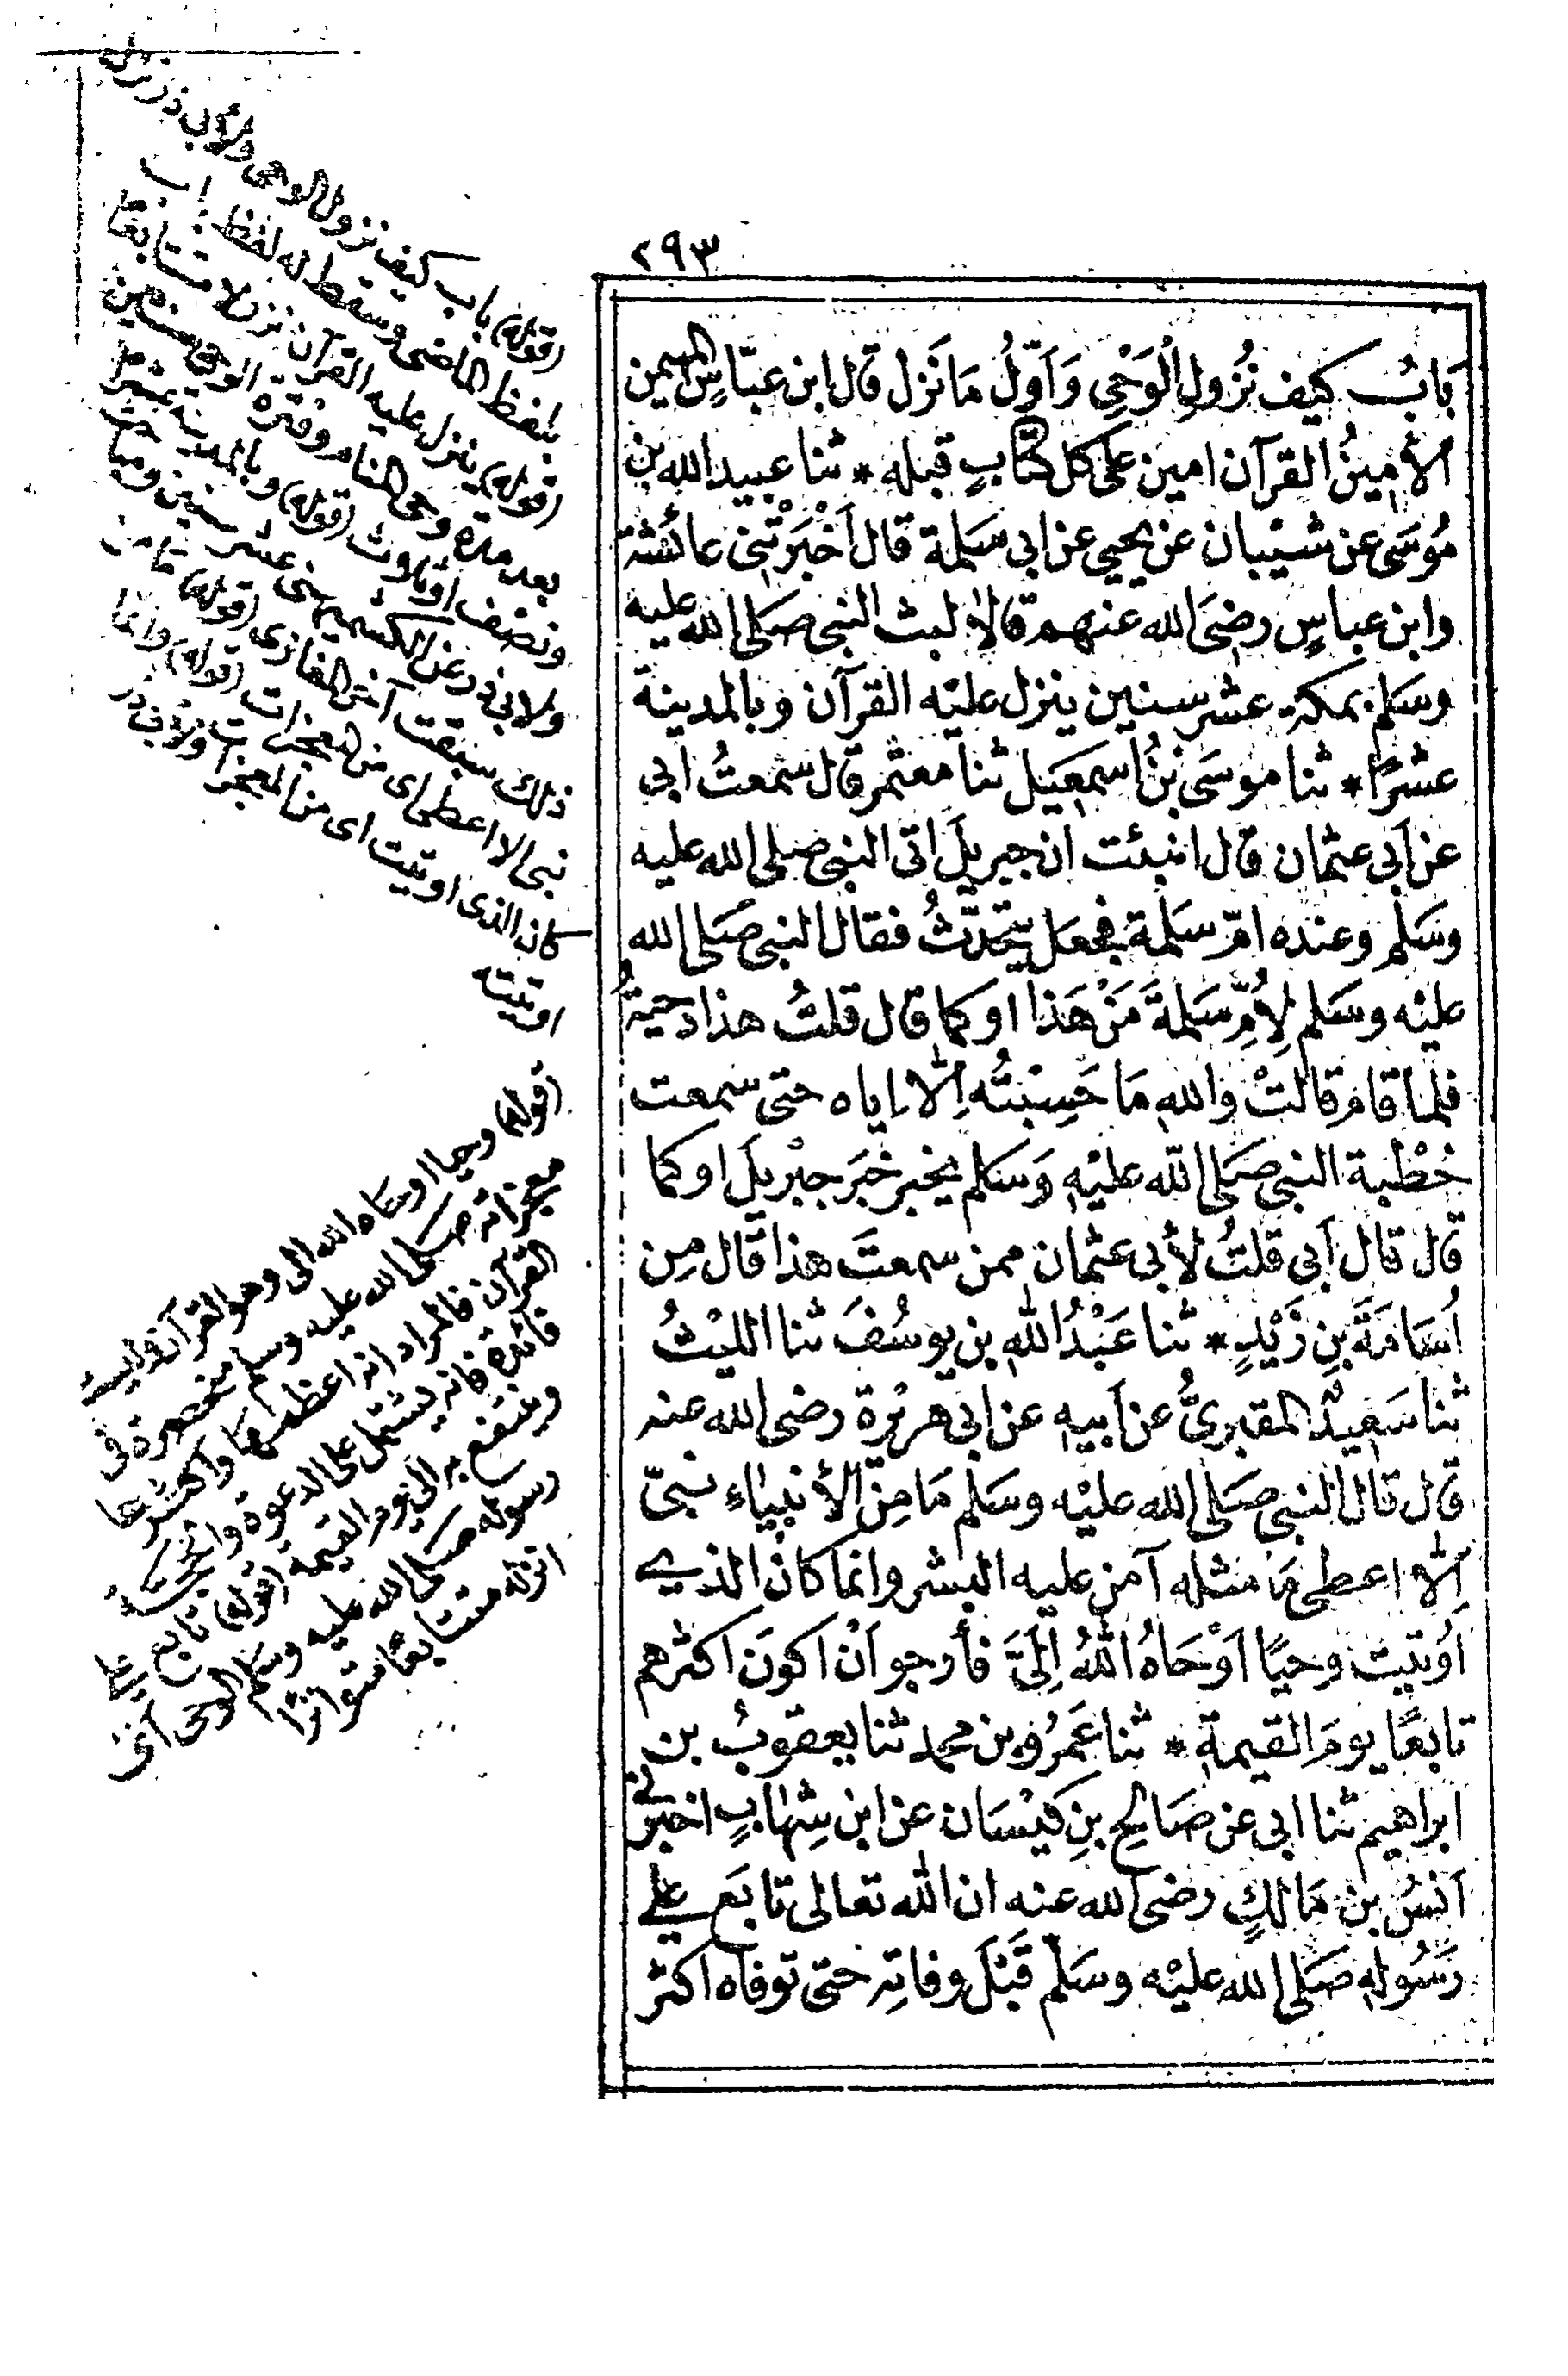 ٢٩٣
بَابُ كيف نُزُولِ الْوَحْيِ وَاَوّلُ مَا نَزَل قال ابن عبّاسٍ المهيمن
الأمينُ القرآن امين على كل كتابٍ قبله * ثنا عبيد الله بن
مُوسَى عن شَيْبان عن يحيى عن ابى سَلمة قال اَخْبَرَتْنِى عائشة
وابن عباسٍ رضى الله عنهم قالا لبث النبى صَلى الله عليه
وسَلم بمكةِ عشر سنين ينزل عليْه القرآن وبالمدينة
عشرًا * ثنا موسَى بنُ اسمعيل ثنا معتمر قال سمعتُ ابى
عن اَبى عثمان قال انبئت ان جبريلَ اتى النبى صلى الله عليه
وسَلم وعنده امّ سَلمة فجعَل يتحدّثُ فقال النبى صَلى الله
عليْه وسَلم لِأُمِّ سَلمةَ مَنْ هَذا او كما قال قلتُ هذا دحيةُ
فلما قام قالتْ واللهِ مَا حَسِبْتُه اِلّا اياه حتى سمعت
خُطْبة النبى صَلى الله عليْهِ وَسَلم يخبر خبَر جبْريلَ او كما
قال قال اَبى قلتُ لأبى عثمان ممن سمعتَ هذا قال مِن
اُسَامَةَ بنِ زَيْدٍ * ثنا عَبْدُ اللهِ بن يوسُفَ ثنا الليْثُ
ثنا سَعِيدٌ المقبرىُّ عن اَبيهِ عن ابى هريْرة رضى الله عنه
قال قال النبى صَلى الله عليْه وسَلم مَا مِنَ الأنبِياءِ نبىّ
اِلّا اعطى مَا مثله آمن عليه البشر وانما كان الذي
اُوتيت وحيًا اَوْحَاهُ اللهُ اِلَىَّ فأرجو اَنْ اكونَ اكثرهم
تابعًا يومَ القيمةِ * ثنا عَمْرُو بن محمد ثنا يعقوبُ بن
ابراهيم ثنا ابى عن صَالحِ بنِ كيْسَان عن ابن شِهابٍ اخبرنى
اَنسُ بن مَالكٍ رضى الله عنه ان الله تعالى تابَع على
رَسُولهِ صَلى الله عليْه وسَلّم قَبْلَ وفاتهِ حتى توفاه اكثر
(قوله) باب كيف نزول الوحى ولأبى ذر نزل
بلفظ الماضى وسقط له لفظ باب
(قوله) ينزل عليه القرآن نزلا متتابعًا
بعد مدة وحى المنام وفترة الوحى سنتين
ونصف او ثلاث (قوله) وبالمدينة عشرًا
ولأبى ذر عن الكشميهنى عشر سنين
ذلك سبقت آخر المغازى (قوله) مامن
نبى الا اعطى اى من المعجزات (قوله) وانما
كان الذى اوتيت اى من المعجزات ولأبى ذر
اوتيته
(قوله) وحيا اوحاه الله الى وهو القرآن وليست
معجزاته صَلى الله عليه وسلم منحصرة فى
القرآن فالمراد انه اعظمها واكثرها
فائدة فانه يشتمل على الدعوة والحجة
وينتفع به الى يوم القيمة (قوله) تابع على
رسوله صَلى الله عليه وسَلم الوحى اى
انزله متتابعًا متواترًا